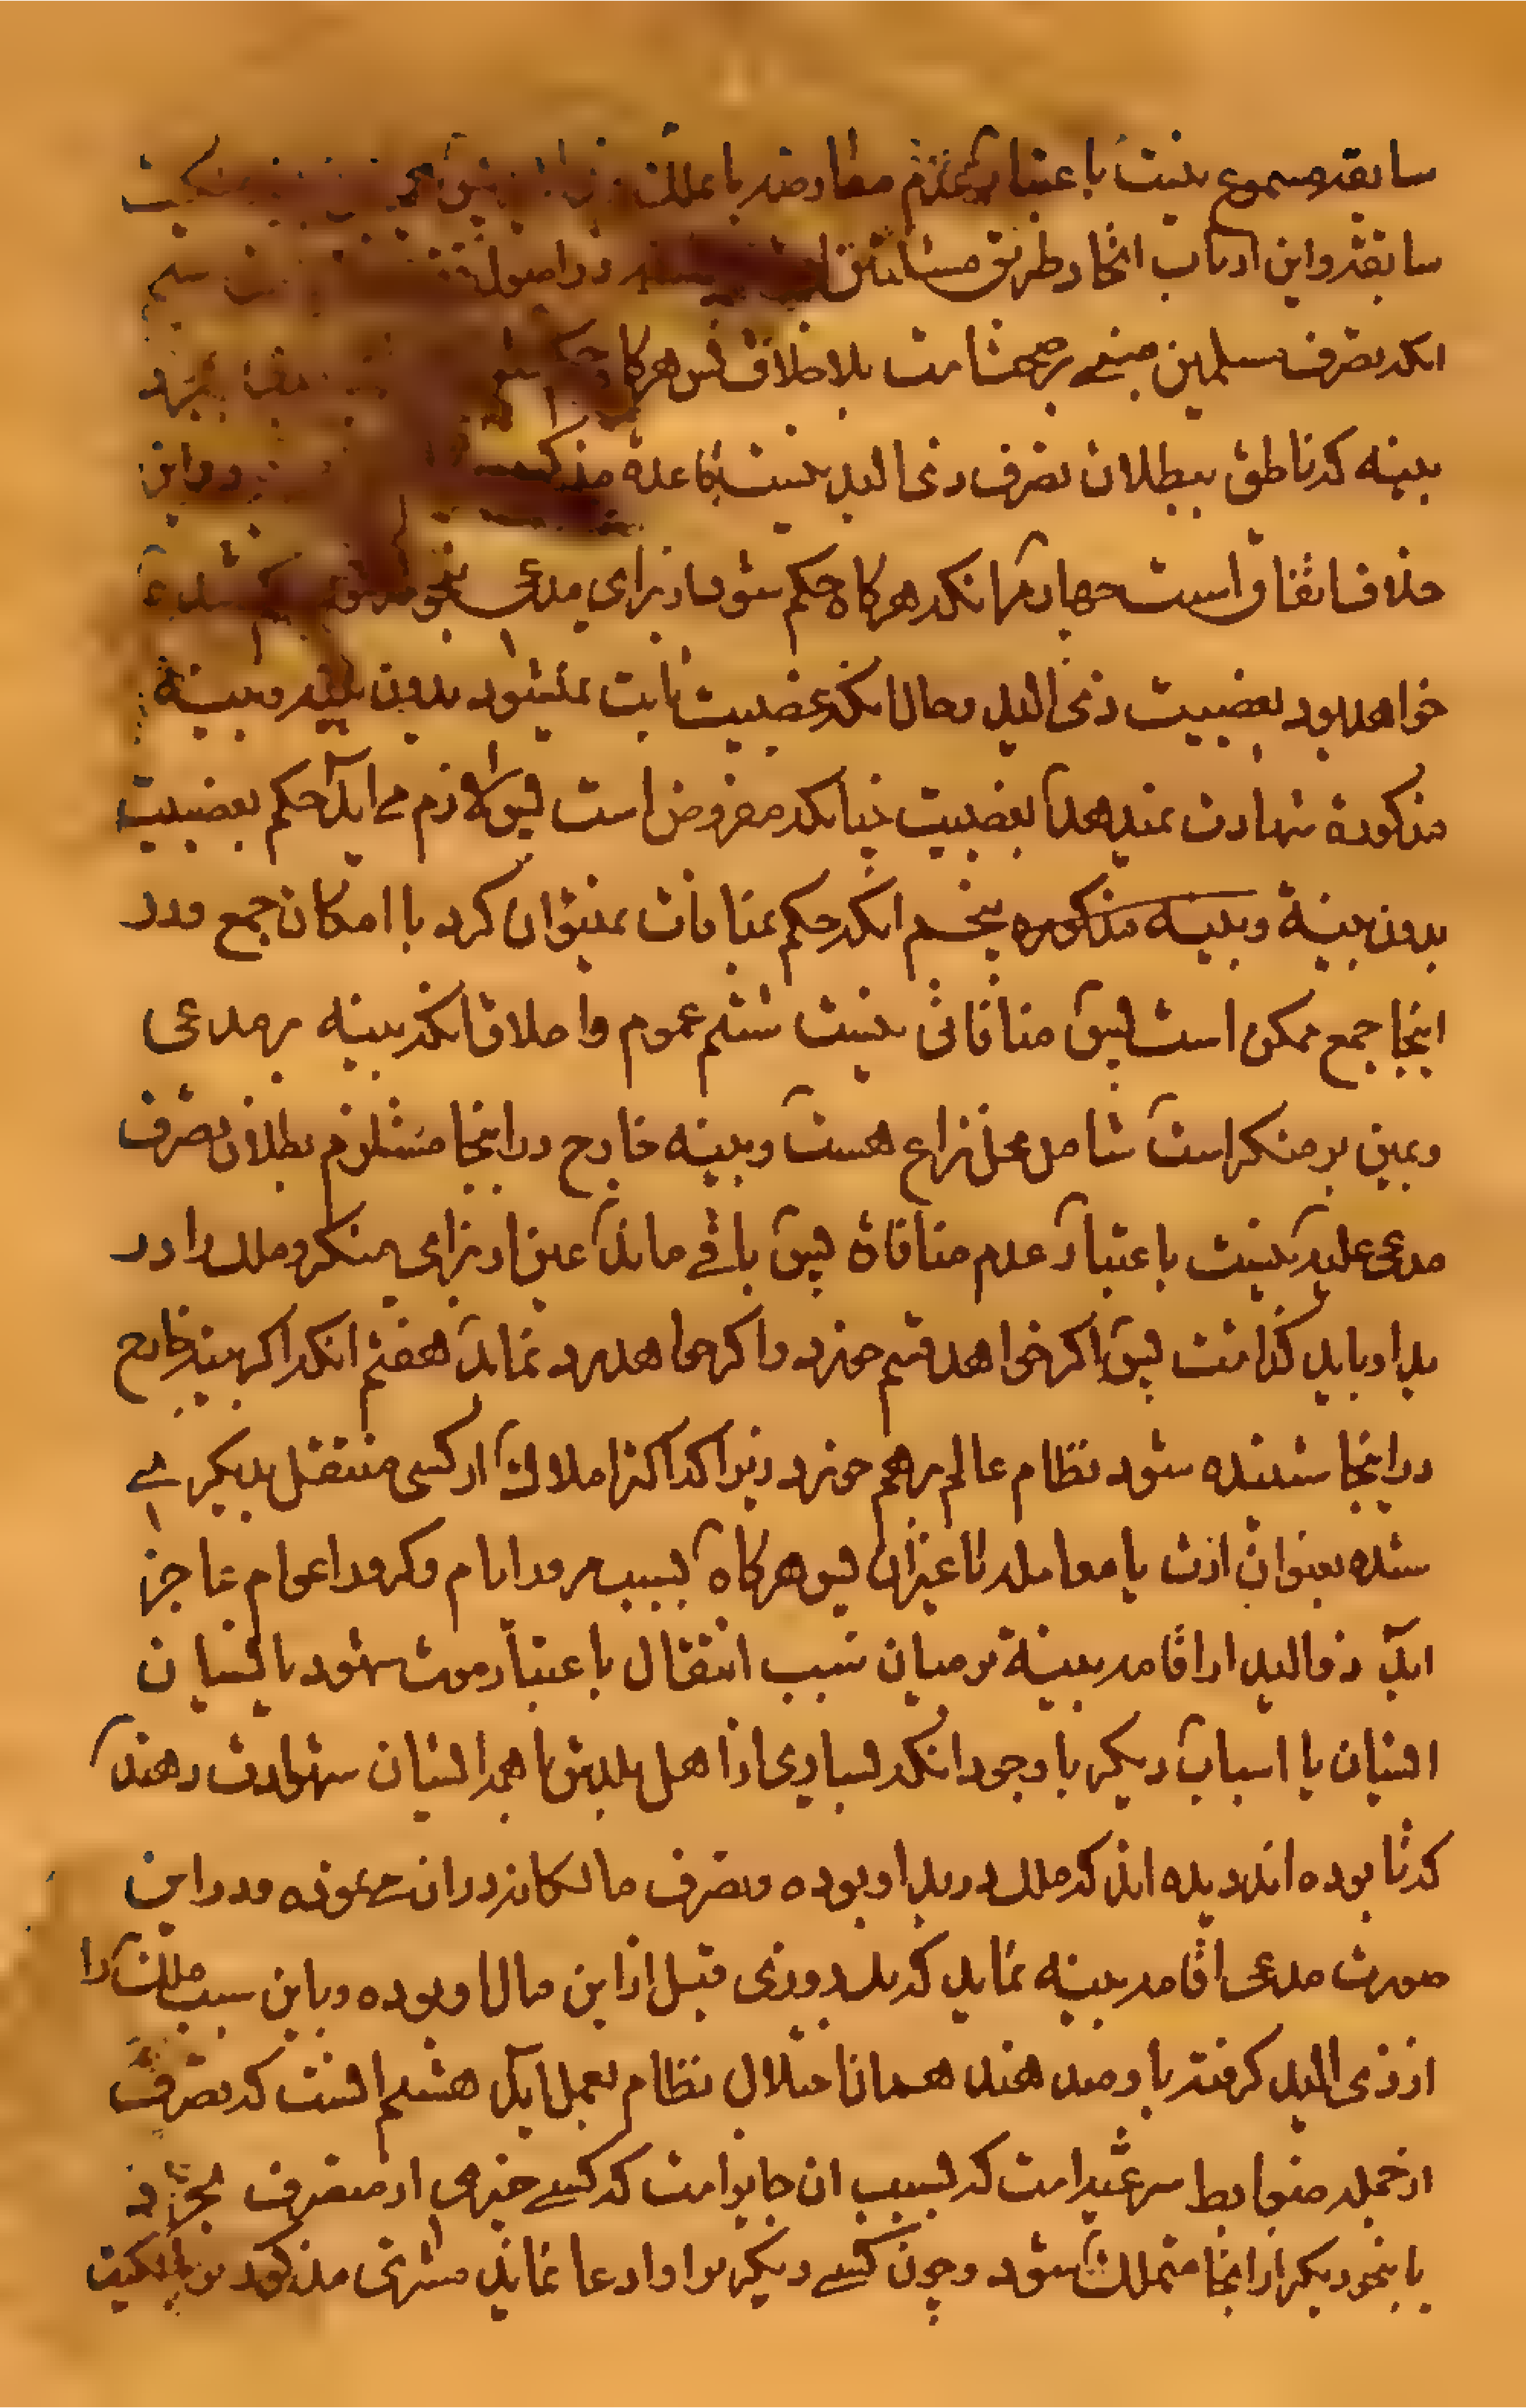 سابقه مسموع نیست باعتبار عدم معارضه با تملک
سابقه و این ارباب اتحاد طریق مسئلتین در اصول
انکه تصرف مسلمین مبنی بر صحت است بلا خلاف پس هرگاه حکم
بینه که ناطق ببطلان تصرف ذی الید نیست قاعده و در این
خلاف اتفاق است چهارم انکه هرگاه حکم شود از برای مدعی
خواهد بود بغصبیت ذی الید و حال انکه غصبیت ثابت نمیشود بدون بینه و بینه
مذکوره شهادت نمیدهد بغصبیت چنانکه مفروض است پس لازم می اید حکم بغصبیت
بدون بینة و بینه مذکوره پنجم انکه حکم بمنافات نمیتوان کرد با امکان جمع و در
اینجا جمع ممکن است پس منافاتی نیست ششم عموم و اطلاق انکه بینه بر مدعی
و یمین بر منکر است شامل محل نزاع هست و بینه خارج در اینجا مستلزم بطلان تصرف
مدعی علیه نیست باعتبار عدم منافاة پس باقی ماند یمین از برای منکر و ملک را در
ید او باید گذاشت پس اگر خواهد قسم خورد و اگر خواهد رد نماید هفتم انکه اگر بینه خارج
در اینجا شنیده شود نظام عالم برهم خورد زیرا که اکثر املاک از کسی منتقل بدیگری
شده بعنوان ارث یا معامله یا غیر ان پس هرگاه بسبب مرور ایام و کرور اعوام عاجز
اید ذو الید از اقامه بینة بر میان سبب انتقال باعتبار موت شهود یا نسیان
ایشان یا اسباب دیگر با وجود انکه بسیاری از اهل بلد بین یا همه ایشان شهادت دهند
که تا بوده اند دیده اند که ملک در ید او بوده و تصرف مالکانه در ان می نموده و در این
صورت مدعی اقامه بینه نماید که یک روزی قبل از این مال او بوده و باین سبب ملک را
از ذی الید گرفته باو میدهند همانا اختلال نظام بعمل اید هشتم انست که تصرف
از جمله ضوابط شرعیه است که بسبب ان جایز است که کسی چیزی از متصرف بخرد
یا بنحو دیگر از انحا متملک شود و چون کسی دیگر بر او ادعا نماید مشتری مذکور بر ملکیت